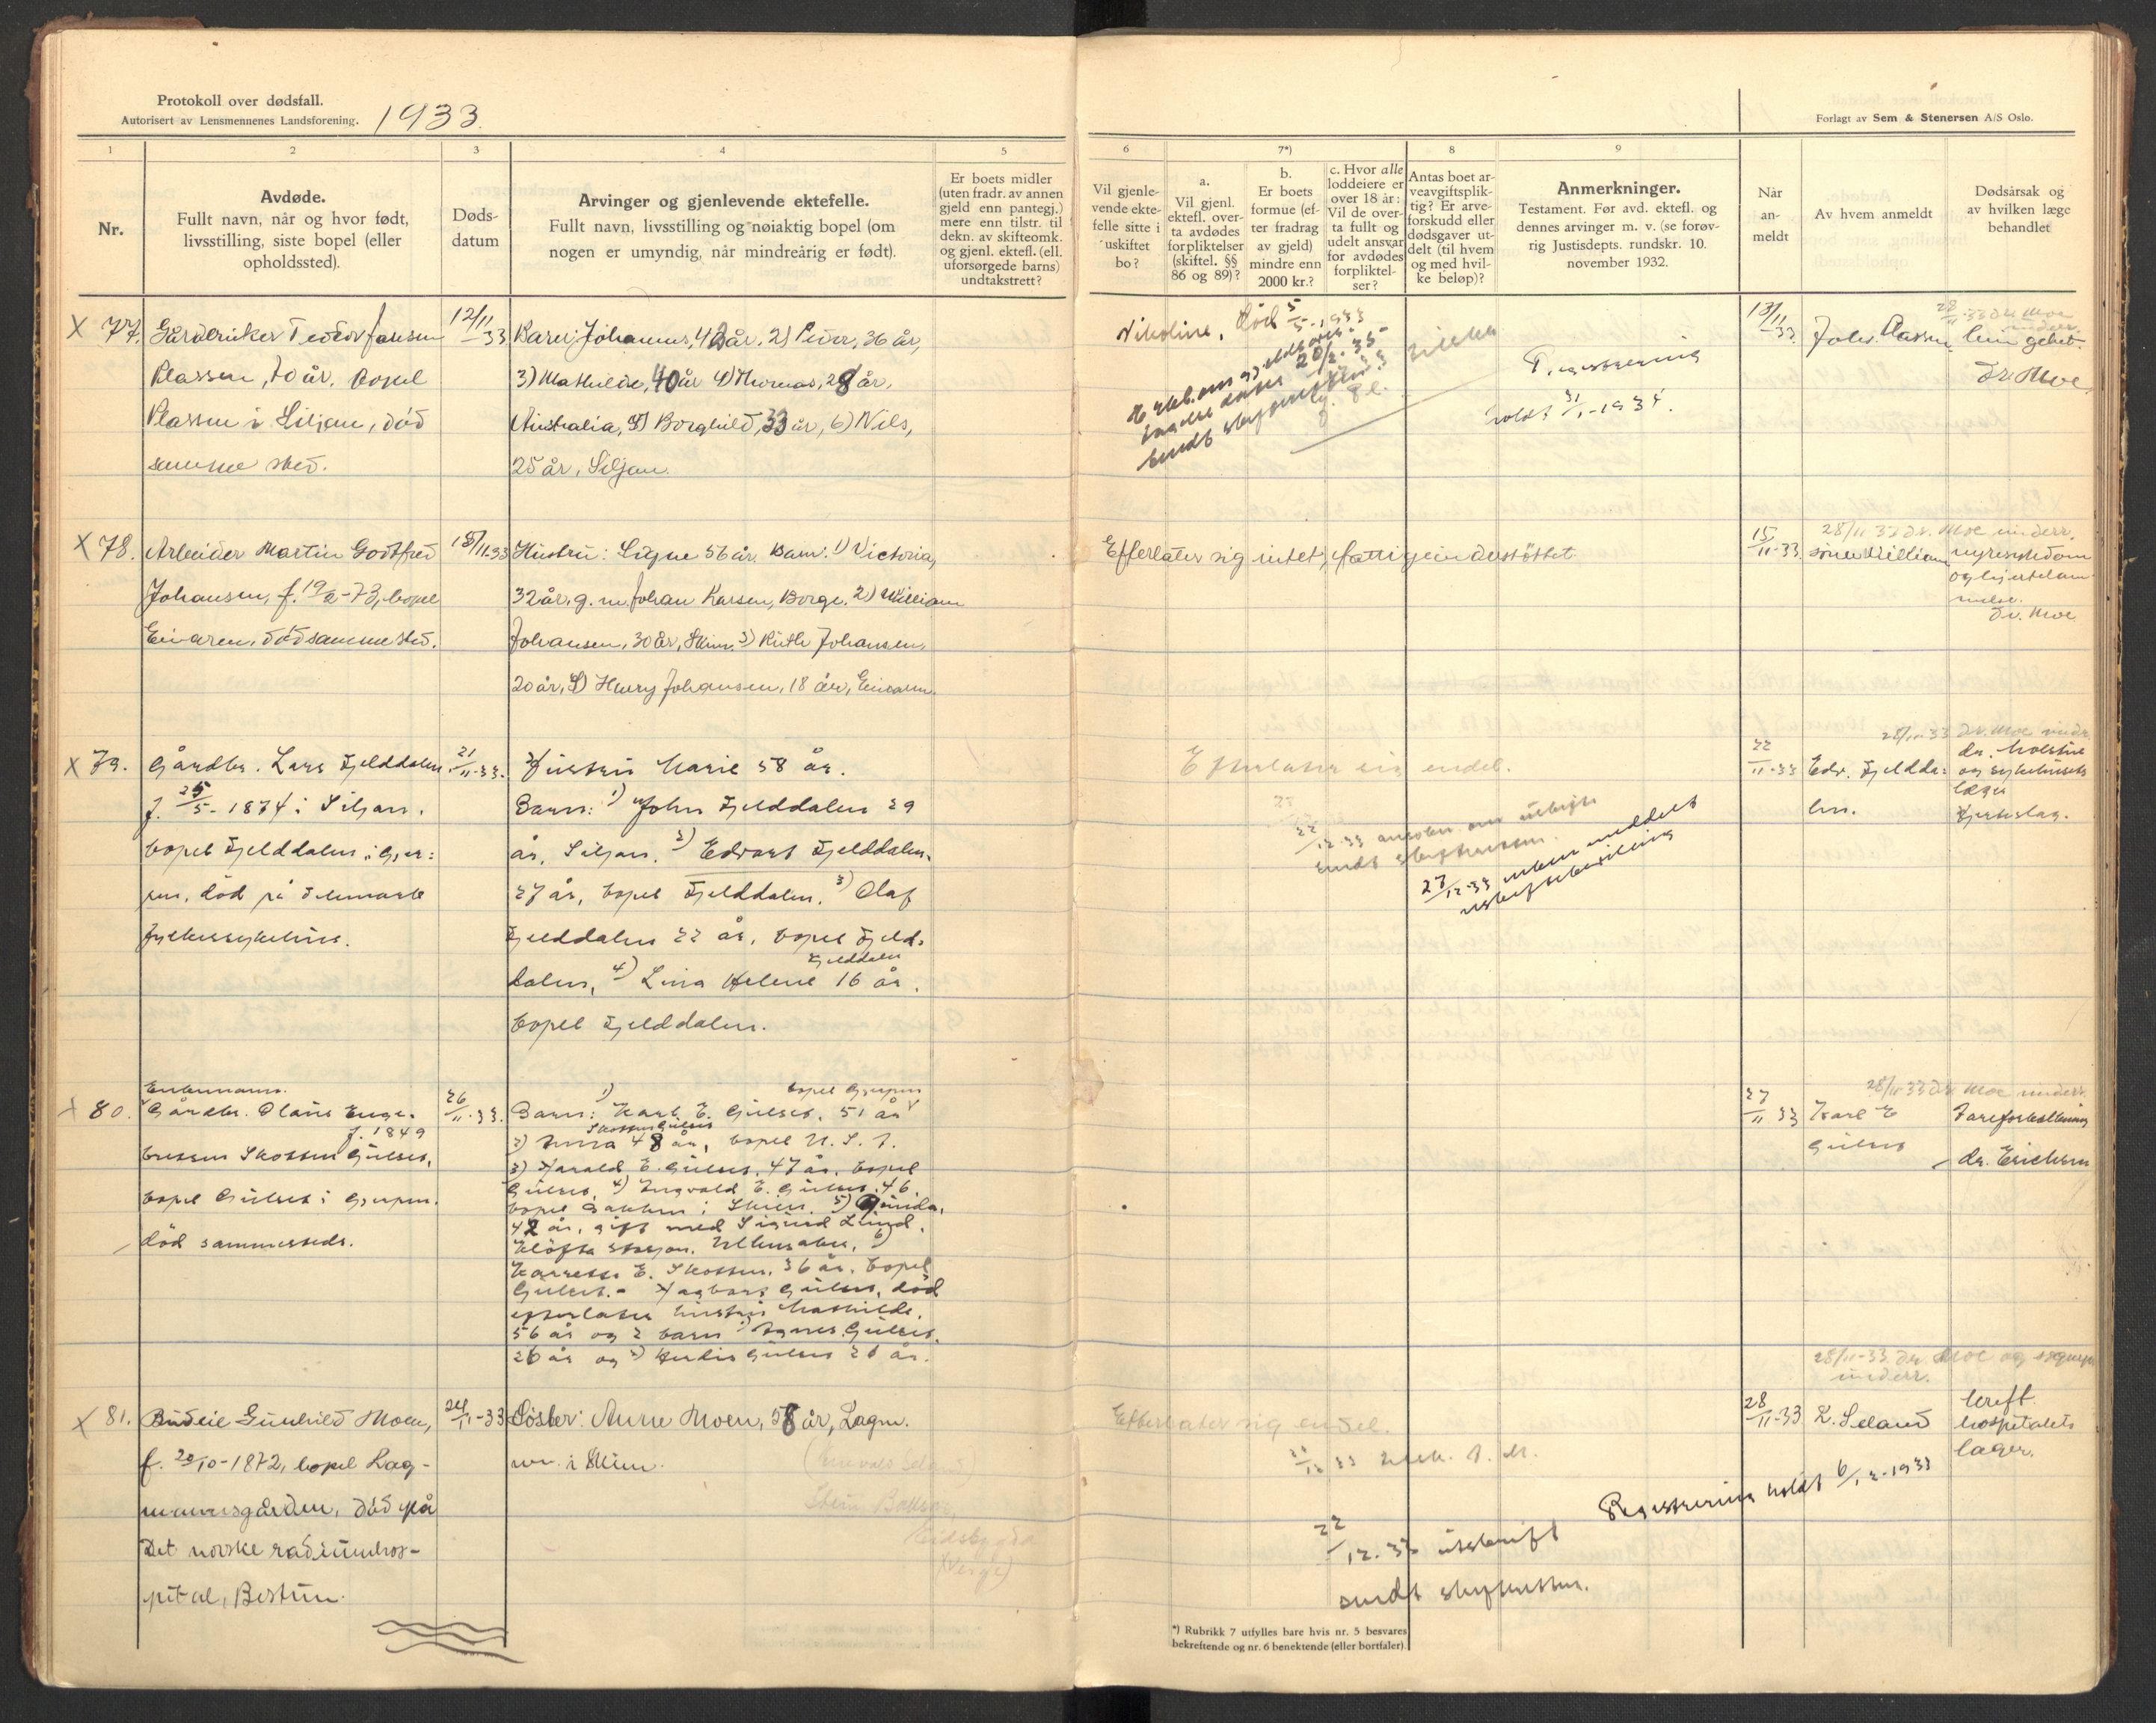 Protokoll over dødsfall.
Autorisert av Lensmennenes Landsforening.
1933.
Forlagt av Sem & Stenersen A/S Oslo.
1
2
3
4
5
6
7*)
8
9
Nr.
Avdøde.
Fullt navn, når og hvor født,
livsstilling, siste bopel (eller
opholdssted).
Døds-
datum
Arvinger og gjenlevende ektefelle.
Fullt navn, livsstilling og nøiaktig bopel (om
nogen er umyndig, når mindreårig er født).
Er boets midler
(uten fradr. av annen
gjeld enn pantegj.)
mere enn tilstr. til
dekn. av skifteomk.
og gjenl. ektefl. (ell.
uforsørgede barns)
undtakstrett?
Vil gjenle-
vende ekte-
felle sitte i
uskiftet
bo?
a.
Vil gjenl.
ektefl. over-
ta avdødes
forpliktelser
(skiftel. §§
86 og 89)?
b.
Er boets
formue (ef-
ter fradrag
av gjeld)
mindre enn
2000 kr.?
c. Hvor alle
loddeiere er
over 18 år:
Vil de over-
ta fullt og
udelt ansvar
for avdødes
forpliktel-
ser?
Antas boet ar-
veavgiftsplik-
tig? Er arve-
forskudd eller
dødsgaver ut-
delt (til hvem
og med hvil-
ke beløp)?
Anmerkninger.
Testament. Før avd. ektefl. og
dennes arvinger m. v. (se forøv-
rig Justisdepts. rundskr. 10.
november 1932.
Når
an-
meldt
Av hvem anmeldt
Dødsårsak og
av hvilken læge
behandlet
X 77. Gårdbruker Teodor Jansen
Plassen, 70 år, bopel
Plassen i Siljan, død
samme sted.
12/11-33
Barn: Johannes, 42 år, 2) Peder, 36 år,
3) Mathilde, 40 år 4) Thomas, 28 år,
Australia, 5) Borghild, 33 år, 6) Nils,
25 år, Siljan.
Nikoline, død 5/5-1933
Registrering
holdt 31/1-1934.
13/11-33
Johs. Plassen
dr. Moe
X 78. Arbeider Martin Godtfred
Johansen, f. 19/2-73, bopel
død samme sted.
15/11.33
Hustru: Signe 56 år. Barn: 1) Victoria,
32 år, g. m. Johan Karsen, Borge. 2) William
Johansen, 30 år, Skien. 3) Ruth Johansen,
20 år, 4) Harry Johansen, 18 år,
Efterlater sig intet, fattigunderstøttet
15/11-33.
28/11 33 dr. Moe underr.
sønn William
nyresykdom
og hjertelam-
melse.
dr. Moe
X 79. Gårdbr. Lars Fjelddalen
f. 25/5-1874 i Siljan.
bopel Fjelddalen i Gjer=
pen, død på Telemark
fylkessykehus.
21/11-33.
Hustru Marie 58 år.
Barn: 1) John Fjelddalen 29
år, Siljan. 2) Edvart Fjelddalen.
27 år, bopel Fjelddalen. 3) Olaf
Fjelddalen 22 år, bopel Fjeld=
dalen, 4) Lina Helene Fjelddalen 16 år.
bopel Fjelddalen.
Efterlater sig endel.
sendt skifteretten.
27/12-33 enken meddelt
uskiftebevilling
22/11-33
28/11-33 dr. Moe underr.
Edv. Fjeldda=
len.
og sykehusets
læger
Hjerteslag.
X 80. Enkemann.
Gårdbr. Olaus Enge-
f. 1849
bretsen Skotten Gulset,
bopel Gulset i Gjerpen.
død sammesteds.
26/11-33.
Barn: 1) Karl E. Gulset, 51 år bopel Gjerpen
2) Anna Skotten Gulset 48 år, bopel U. S. A.
3) Harald E. Gulset, 47 år, bopel
Gulset, 4) Ingvald E. Gulset, 46,
bopel Bakken i Skien, 5) Gunda,
42 år, gift med Sigurd Lund,
Kløfta stasjon, Ullensaker, 6)
E. Skotten, 36 år, bopel
Gulset. - Dagbart Gulset, død
efterlater hustru Mathilde,
56 år og 2 barn 1) Agnes Gulset,
26 år og 2) Herdis Gulset 26 år.
27/11 33
28/11 33 dr. Moe underr.
Karl E
Gulset
Åreforkalkning
dr. Erichsen
X 81. Budeie Gunhild Moen,
f. 20/10-1872, bopel Lag-
mannsgården, død på
Det norske radiumhos-
pital, Bestum.
24/11-33
Søster: Anne Moen, 58 år, Lagm.
i Skien.
Efterlater sig endel.
22/12-33 utskrift
sendt skifteretten.
Registrering holdt 6/12-1933
28/11-33
28/11-33 dr. Moe og
underr.
L. Seland
kreft.
hospitalets
læger.
*) Rubrikk 7 utfylles bare hvis nr. 5 besvares
bekreftende og nr. 6 benektende (eller bortfaler).